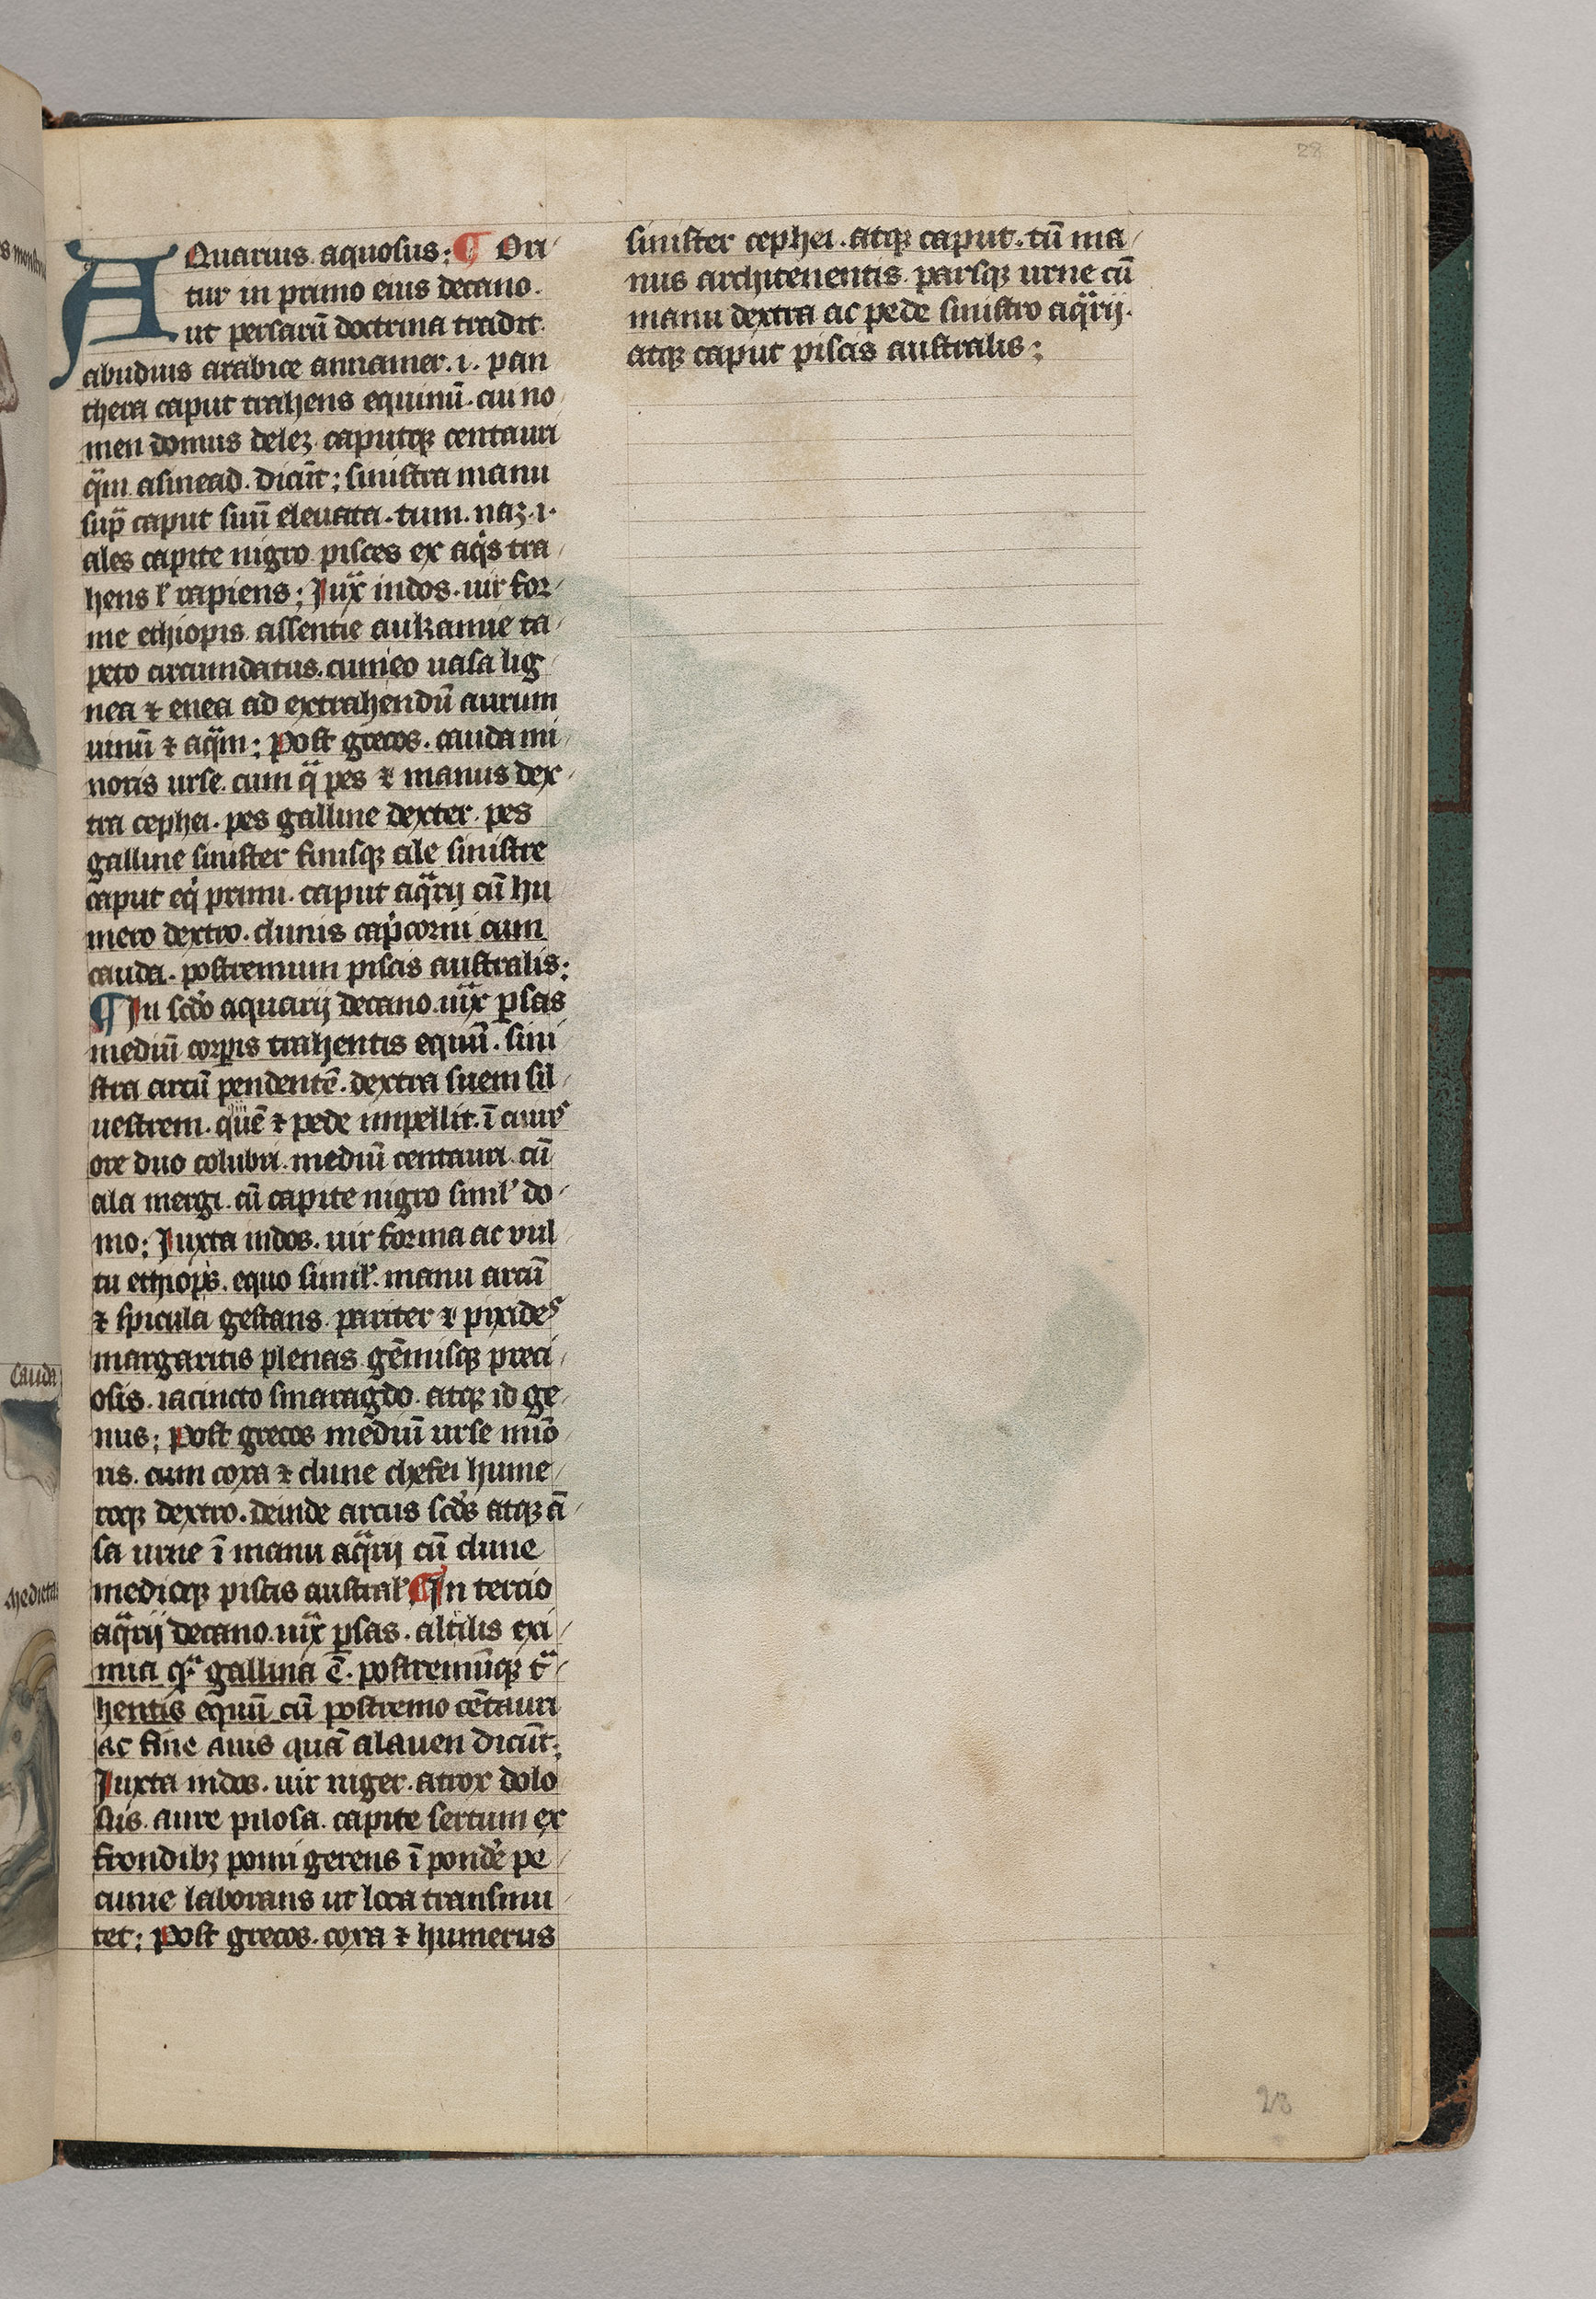 28
AQuarius aquosus; ¶ Ori
tur in primo eius decano.
ut persarū doctrina tradit.
abuduis arabice annamer. i. pan
thera caput trahens equinū. cui no
men domus delez caputqꝫ centauri
qᷓm asinead. dicūt; sinistra manu
sup̄ caput suū eleuata. tum. naz. i.
ales capite nigro pisces ex aqͥs tra
hens ł rapiens; Iuxᷓ indos. uir for
me ethiopis assentie
peto circumdatus. uasa lig
nea ⁊ enea ad extrahendū aurum
uinū ⁊ aqᷓm; Post grecos. cauda mi
noris urse. cum qᷓ pes ⁊ manus dex
tra cephei. pes galline dexter. pes
galline sinister finisqꝫ ale sinistre
caput eqͥ primi. caput aqᷓrij cū hu
mero dextro. clunis capͥcorni cum
cauda. postremum piscis australis;
¶ In scdo aquarij decano. iuxᷓ ꝑsas
mediū corꝑis trahentis equū. sini
stra arcū pendentē. dextra suem sil
uestrem. quē ⁊ pede impellit. ī cuius
ore duo colubri. mediū centauri cū
ala mergi. cū capite nigro simiľ do
mo; Iuxta indos. uir forma ac vul
tu ethiopis. equo simiľ. manu arcū
⁊ spicula gestans. pariter ⁊ pixides
margaritis plenas gēmisqꝫ preci
osis. iacincto smaragdo. atqꝫ id ge
nus; Post grecos mediū urse mīo
ris. cum coxa ⁊ clune chefei hume
roqꝫ dextro. deinde arcus scdˢ atqꝫ ā
sa urne ī manu aqᷓrij cū clune
medioqꝫ piscis austraľ ¶ In tercio
aqᷓrij decano. iuxᷓ ꝑsas. altilis exi
mia q̄ᷓ gallina ē. postremūqꝫ tᷓ
hentis equū cū postremo cētauri
ac fine auis quā alauen dicūt;
Iuxta indos. uir niger. atrox dolo
sus. aure pilosa. capite sertum ex
frondibꝫ pomi gerens ī pondē pe
cunie laborans ut loca transmu
tet; Post grecos. coxa ⁊ humerus
sinister cephei. atqꝫ caput. tū ma
nus architenentis. parsqꝫ urne cū
manu dextra ac pede sinistro aqᷓrij.
atqꝫ caput piscis australis;
cauda
medietas
28